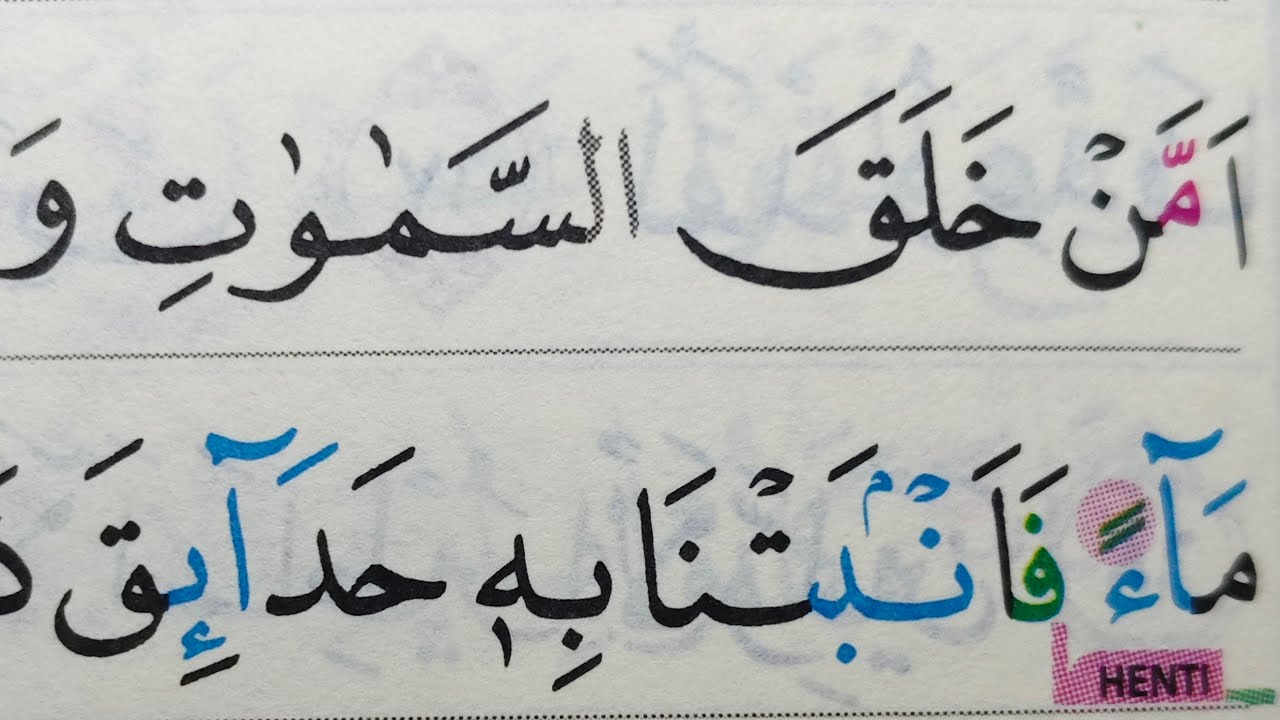 اَمَّنْ خَلَقَ السَّمٰوٰتِ وَ
مَآءً فَاَنْۢبَتْنَا بِهٖ حَدَآئِقَ ذَ
HENTI